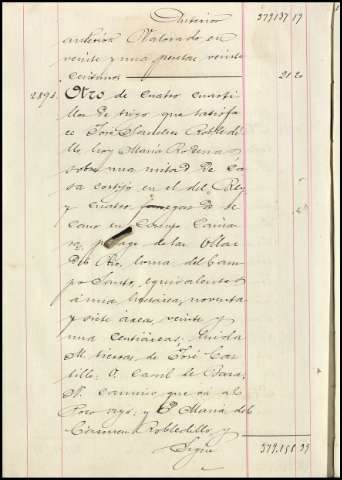 Anterior 579.137 19
anterior Valorado en
veinte y una pesetas veinte
centimos 21 20
2893. Otro de cuatro cuarti
llos de trigo que satisfa
ce José Robledi
llo hoy María
sobre una mitad de ca
sa cortijo en el del Rey
y cuatro fanegas de se
cano en Campo
pago de las Ollas
del Rio, loma del Cam
po Santo, equivalentes
á una hectárea, noventa
y siete áreas, veinte y
una centiáreas, linda
M. tierras, de José Cas
tillo; P. Camil de Baza;
N. camino que vá al
Pozo rayo; y P. María del
Cármen Robledillo, y
Sigue 579.158 39